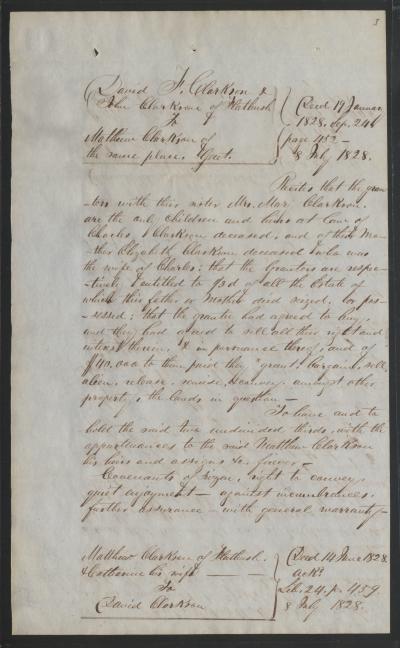 3
David F. Clarkson &
John Clarkson of Flatbush
To
Matthew Clarkson of
the same place, Gent.
Deed 19 Januar
1828. Lib. 24
page 452 -
8 July 1828.
Recites that the gran
-tors with their sister Mrs. Mar Clarkson
are the only children and heirs at law of
Charles Clarkson deceased, and of their Mo
-ther Elizabeth Clarkson deceased who was
the wife of Charles; that the Grantors are respec
-tively entitled to 1/3d of all the Estate of
which their father or Mother died seized, or pos
-sessed; that the grantee had agreed to buy,
and they had agreed to sell all their right and
interest therein, & in pursuance thereof, and of
$40.000 to them paid they "grant, bargain, sell,
alien, release, remise, & convey, amongst other
property, the lands in question -
To have and to
hold the said two undivided thirds, with the
appurtenances to the said Matthew Clarkson
his heirs and assigns for forever -
Covenants of seizin, right to convey,
quiet enjoyment - against incumbrances,
further assurance - with general warranty -
Matthew Clarkson of Flatbush
& Catherine his wife
To
David Clarkson
Deed 14 June 1828
Ackd.
Lib. 24. p. 459.
8 July 1828.